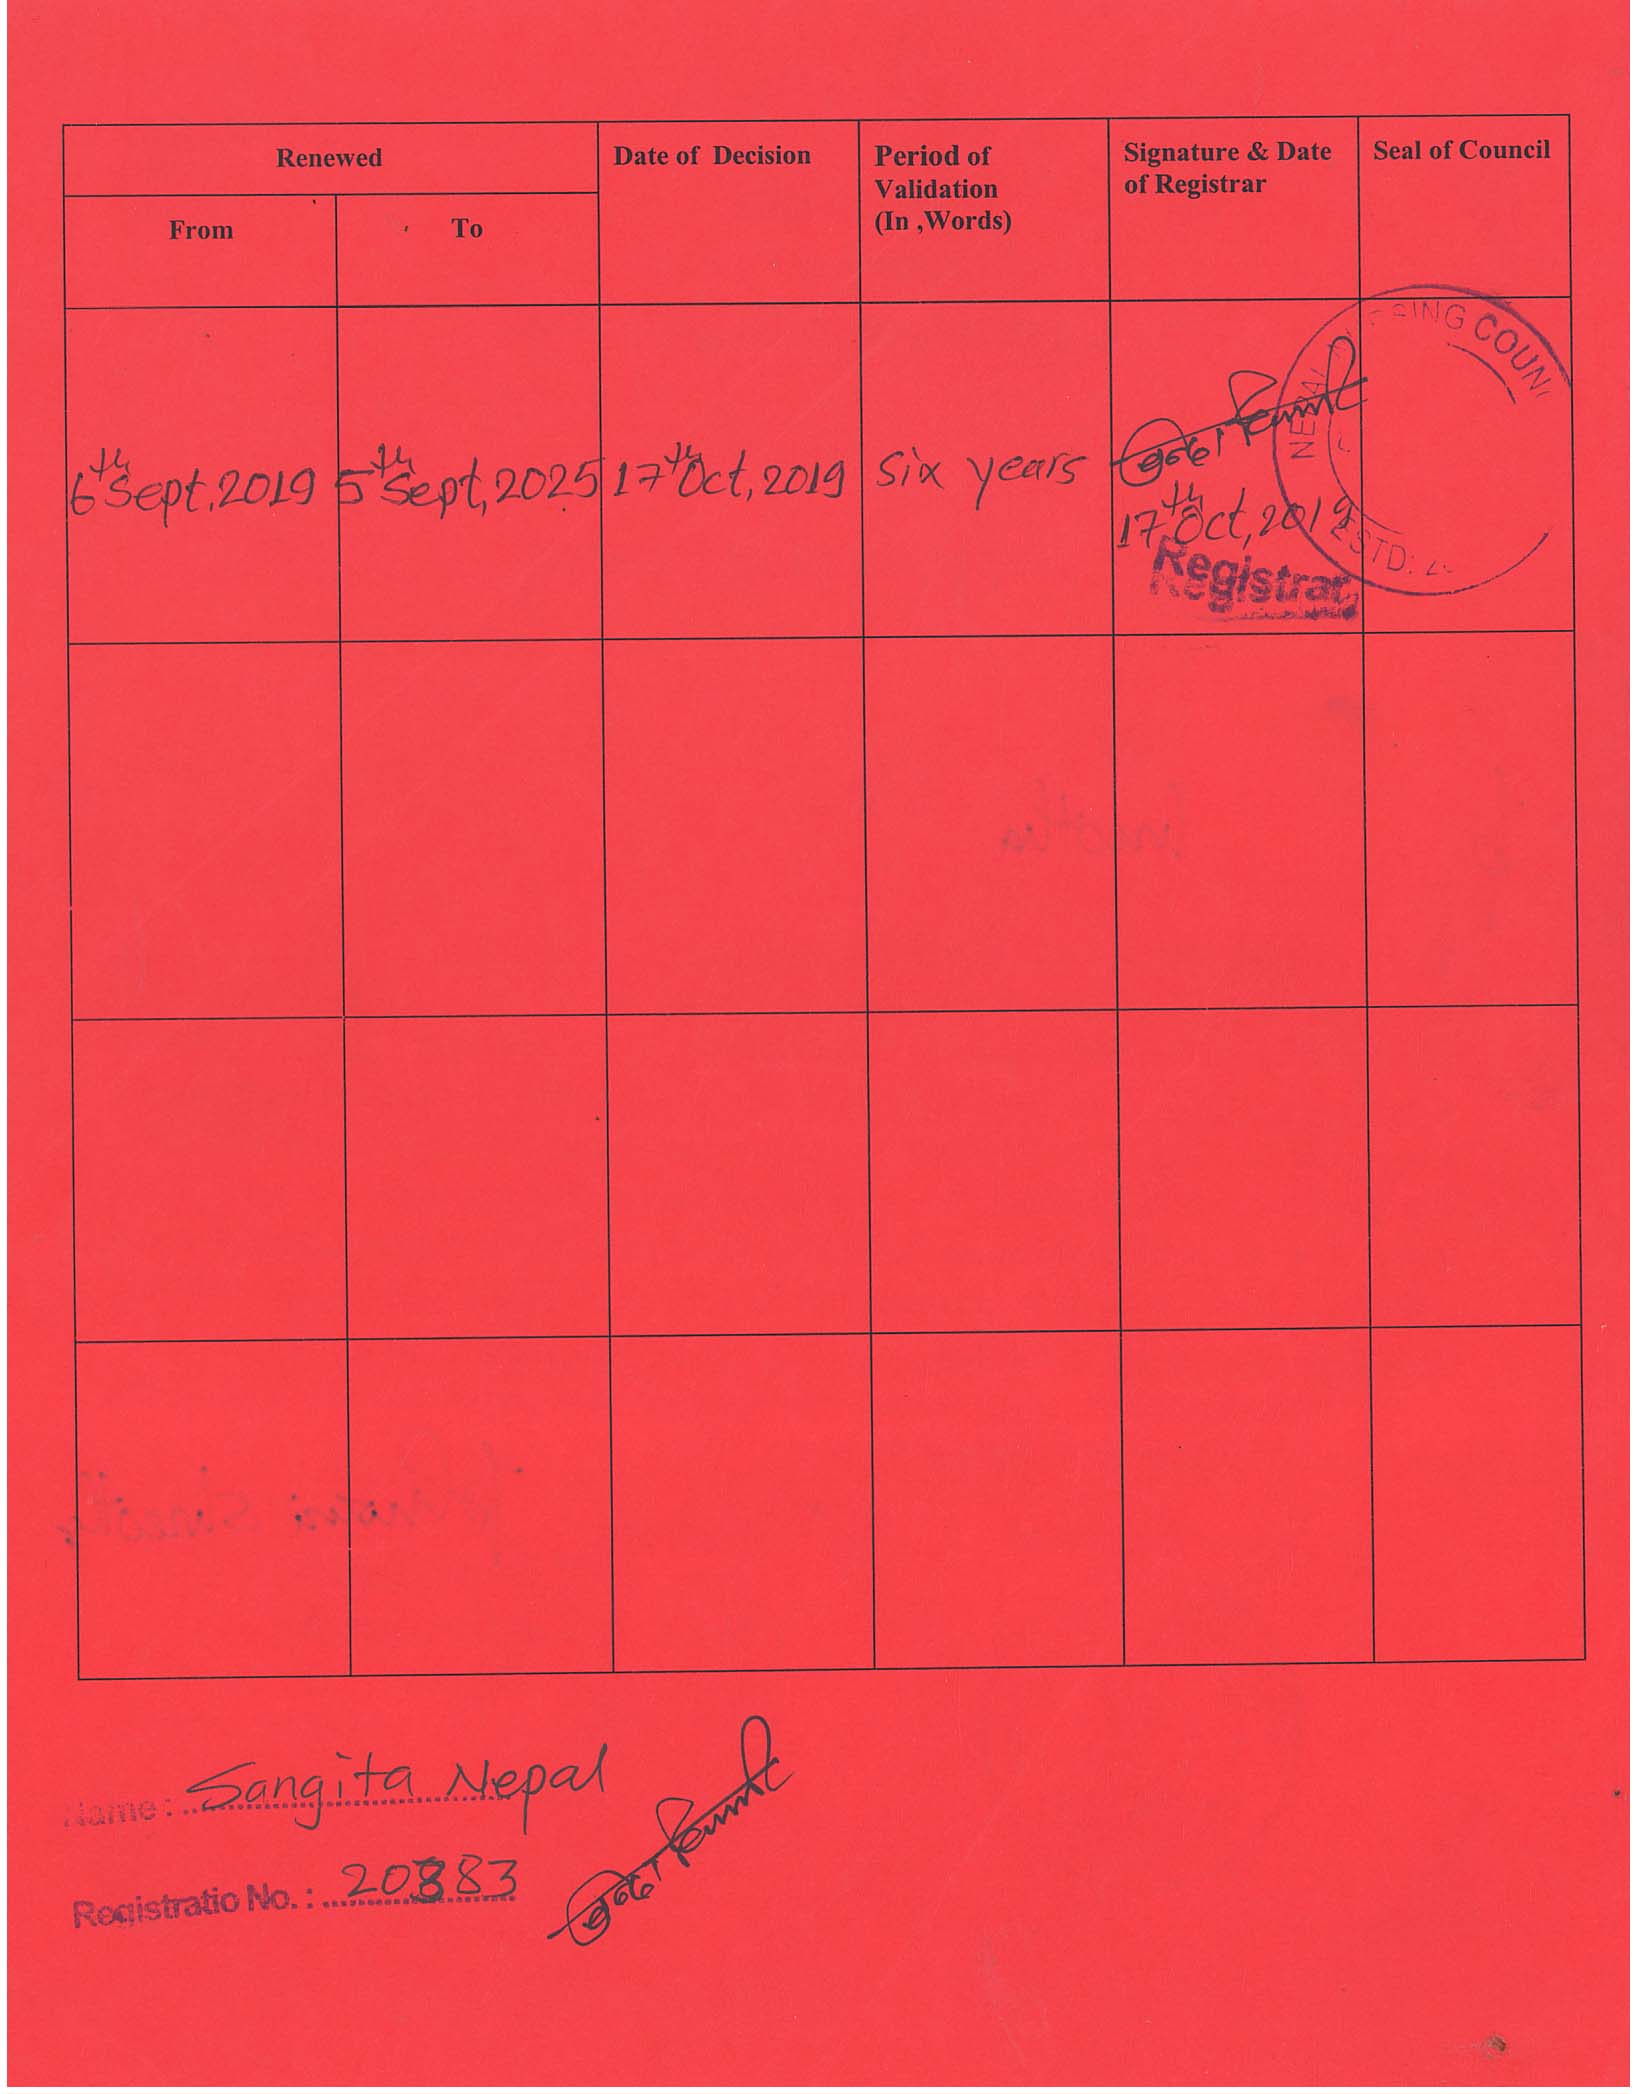 Renewed
Date of Decision
Period of
Validation
(In ,Words)
Signature & Date
of Registrar
Seal of Council
From
To
6th Sept, 2019
5th Sept, 2025
17th Oct, 2019
six years
17th Oct, 2019
Registrar
NEPAL COUN
ESTD:
Name : Sangita Nepal
Registratio No. : 20383